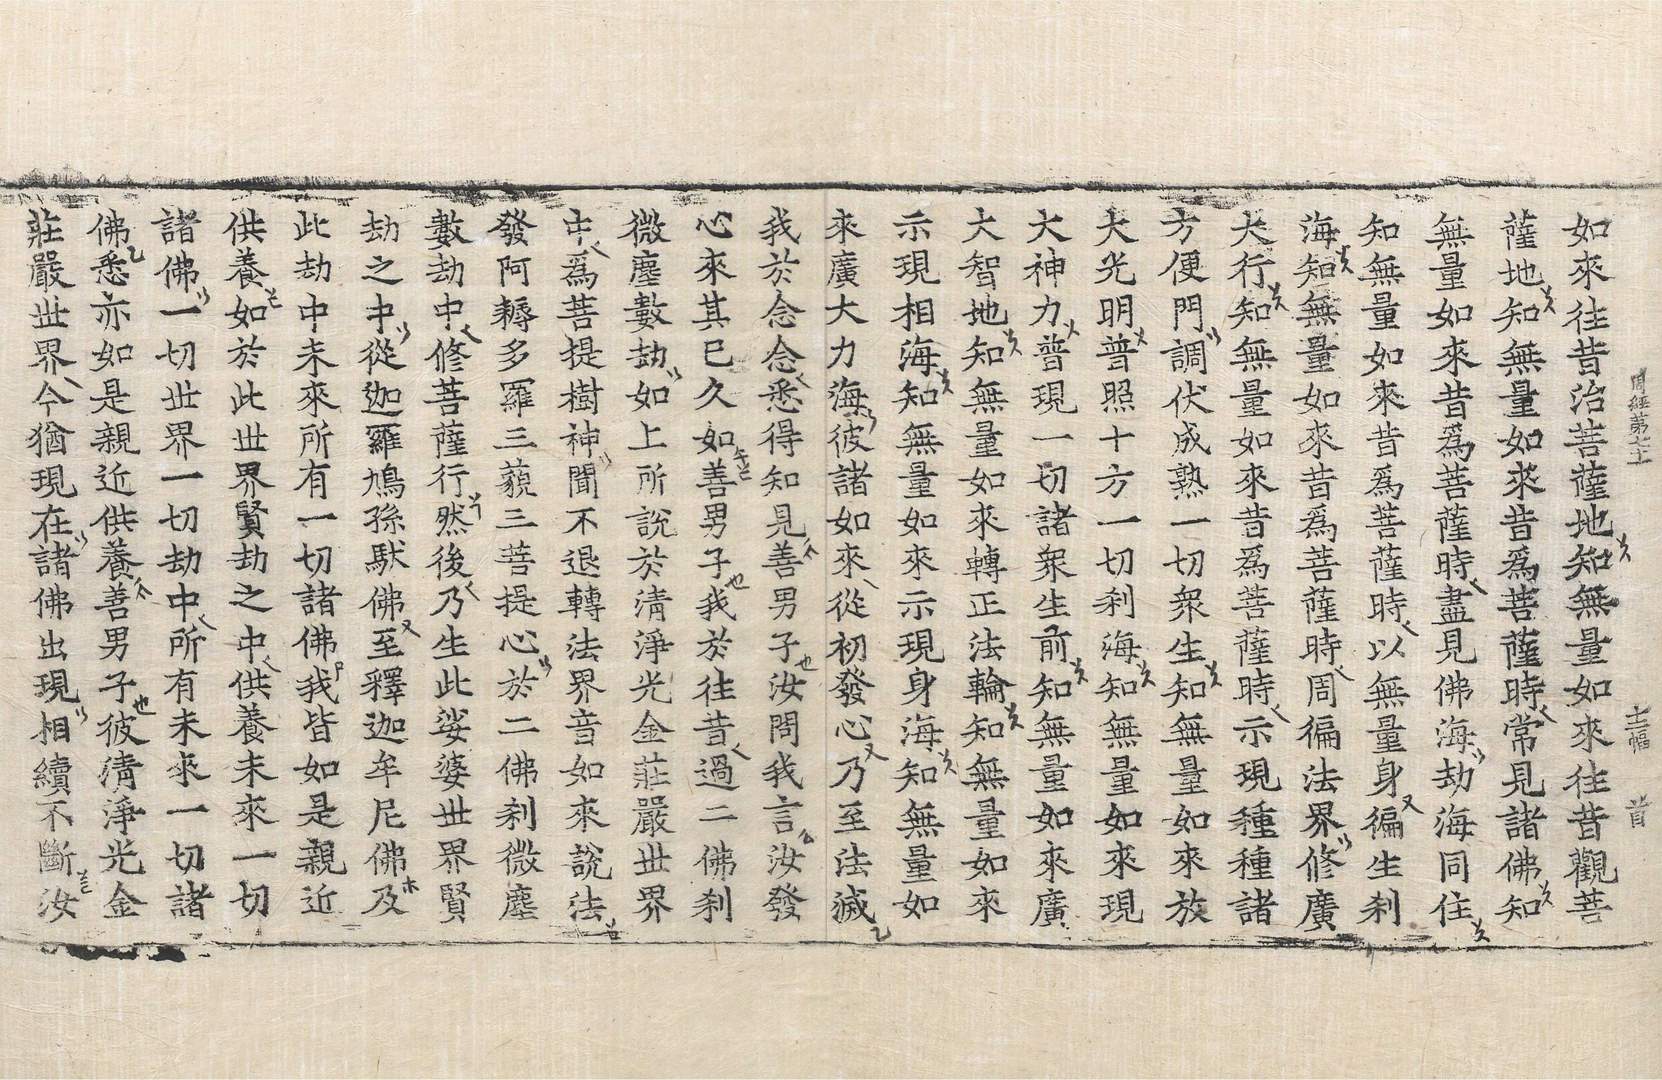 周經苐七十一 十二幅 首
如來往昔治菩薩地知無量如來往昔觀菩
薩地知無量如來昔爲菩薩時常見諸佛知
無量如來昔爲菩薩時盡見佛海劫海同住
知無量如來昔爲菩薩時以無量身徧生刹
海知無量如來昔爲菩薩時周徧法界修廣
大行知無量如來昔爲菩薩時示現種種諸
方便門調伏成熟一切衆生知無量如來放
大光明普照十方一切刹海知無量如來現
大神力普現一切諸衆生前知無量如來廣
大智地知無量如來轉正法輪知無量如來
示現相海知無量如來示現身海知無量如
來廣大力海彼諸如來從初發心乃至法滅
我於念念悉得知見善男子汝問我言汝發
心來其已久如善男子我於往昔過二佛刹
微塵數劫如上所說於清淨光金莊嚴世界
中爲菩提樹神聞不退轉法界音如來說法
發阿耨多羅三藐三菩提心於二佛刹微塵
數劫中修菩薩行然後乃生此娑婆世界賢
劫之中從迦羅鳩孫馱佛至釋迦牟尼佛及
此劫中未來所有一切諸佛我皆如是親近
供養如於此世界賢劫之中供養未來一切
諸佛一切世界一切劫中所有未來一切諸
佛悉亦如是親近供養善男子彼清淨光金
莊嚴世界今猶現在諸佛出現相續不斷汝